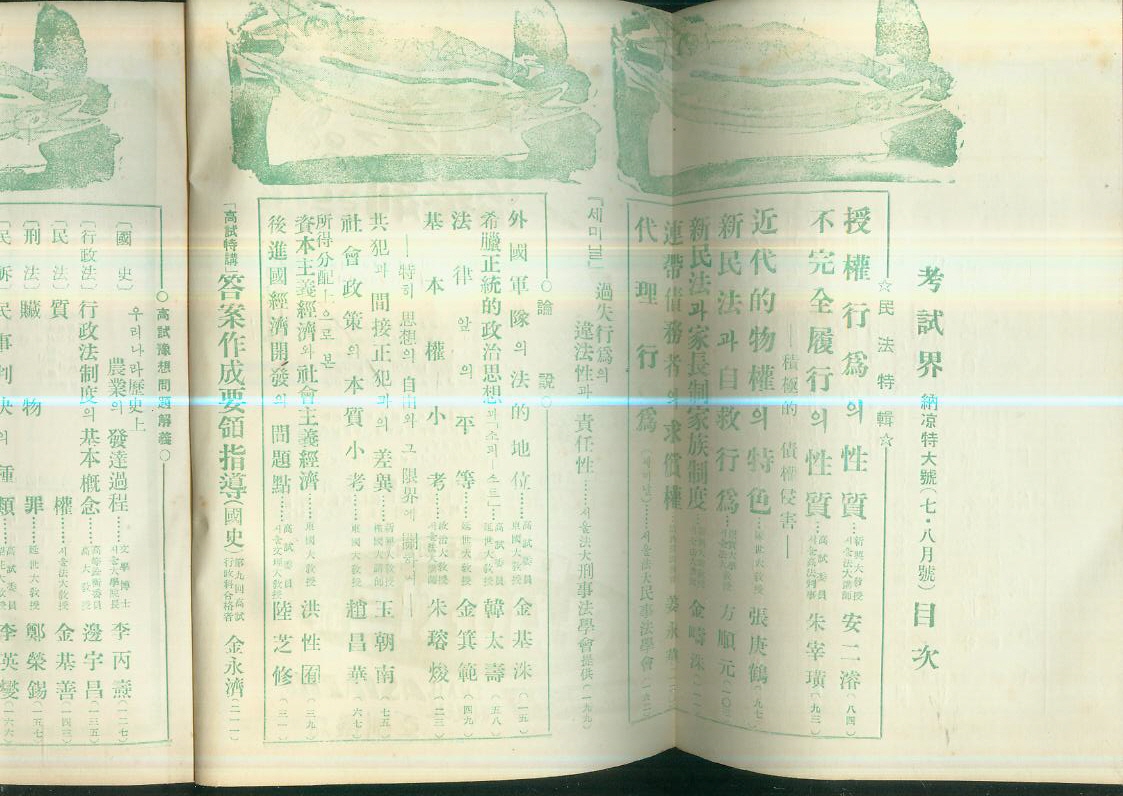 考試界 納凉特大號(七·八月號) 目次
☆民法特輯☆
授權行爲의 性質 서울法大講師 安二濬(八四)
不完全履行의 性質 高試委員 朱宰璜(九三)
―積極的 債權侵害―
近代的物權의 特色 延世大敎授 張庚鶴(九七)
新民法과 自救行爲 方順元
新民法과 家長制家族制度 金疇洙
連帶債務者의 求償權
代理行爲 서울法大民事法學會
「세미날」 過失行爲의 違法性과 責任性……서울法大刑事法學會提供(一九九)
○論說○
外國軍隊의 法的地位 高試委員 東國大敎授 金基洙(一五)
希臘正統的政治思想 高試委員 延世大敎授 韓太壽(五八)
法律앞의 平等 延世大敎授 金箕範(四九)
基本權小考 朱瑢焌(二三)
―特히 思想의 自由와 그 限界에 關하여―
共犯과 間接正犯과의 差異 王朝南(七五)
社會政策의 本質小考 東國大敎授 趙昌華(六七)
所得分配上으로 본
資本主義經濟와 社會主義經濟 東國大敎授 洪性囿(三九)
後進國經濟開發의 問題點 高試委員 서울文理大敎授 陸芝修(三一)
「高試特講」 答案作成要領指導(國史) 第九回高試行政科合格者 金永濟(二一一)
○高試豫想問題解義○
〔國史〕 우리나라歷史上
農業의 發達過程 文學博士 서울大學院長 李丙燾(一二七)
〔行政法〕 行政法制度의 基本概念 高大敎授 邊宇昌(一三五)
〔民法〕 質權 서울法大敎授 金基善(一四三)
〔刑法〕 贓物罪 延世大敎授 鄭榮錫(一五七)
〔民訴〕 民事判決의 種類 高試委員 李英燮(一六